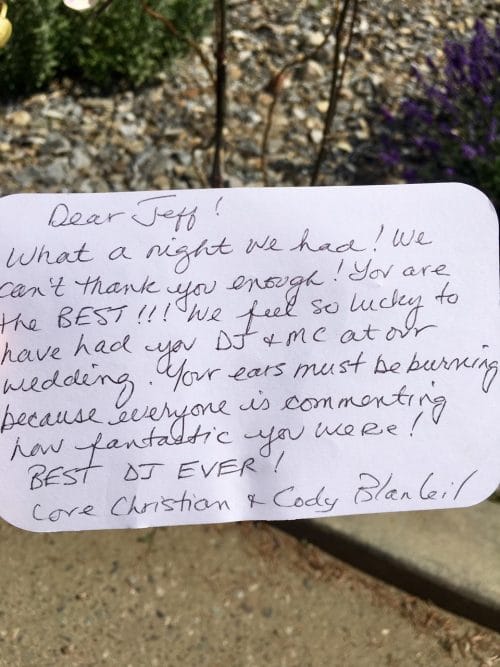 Dear Jeff!
What a night we had! We
can't thank you enough! You are
the BEST!!! We feel so lucky to
have had you DJ & MC at our
wedding. Your ears must be burning
because everyone is commenting
how fantastic you were!
BEST DJ EVER!
Love Christian & Cody Blanleil